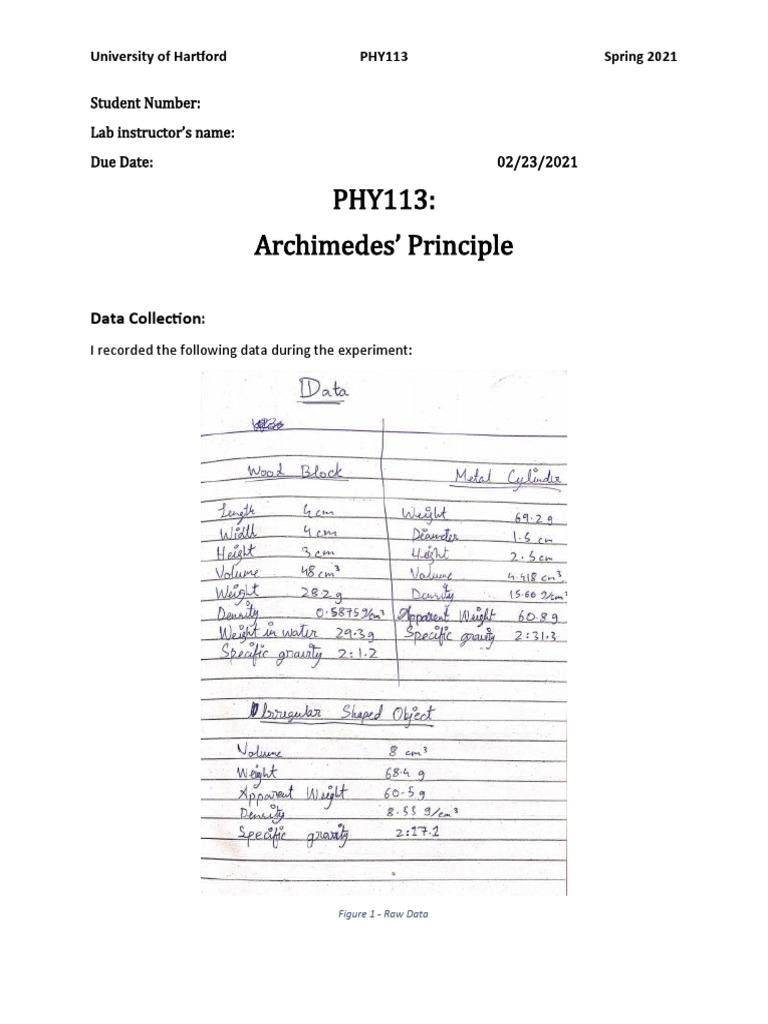 University of Hartford PHY113 Spring 2021
Student Number:
Lab instructor's name:
Due Date: 02/23/2021
PHY113:
Archimedes' Principle
Data Collection:
I recorded the following data during the experiment:
Data
Wood Block
Length 4 cm
Width 4 cm
Height 3 cm
Volume 48 cm³
Weight 28.2 g
Density 0.5875 g/cm³
Weight in water 29.3 g
Specific gravity 2:1.2
Metal Cylinder
Weight 69.2 g
Diameter 1.5 cm
Height 2.5 cm
Volume 4.418 cm³
Density 15.66 g/cm³
Apparent Weight 60.8 g
Specific gravity 2:31.3
Irregular Shaped Object
Volume 8 cm³
Weight 68.4 g
Apparent Weight 60.5 g
Density 8.55 g/cm³
Specific gravity 2:17.1
Figure 1 - Raw Data